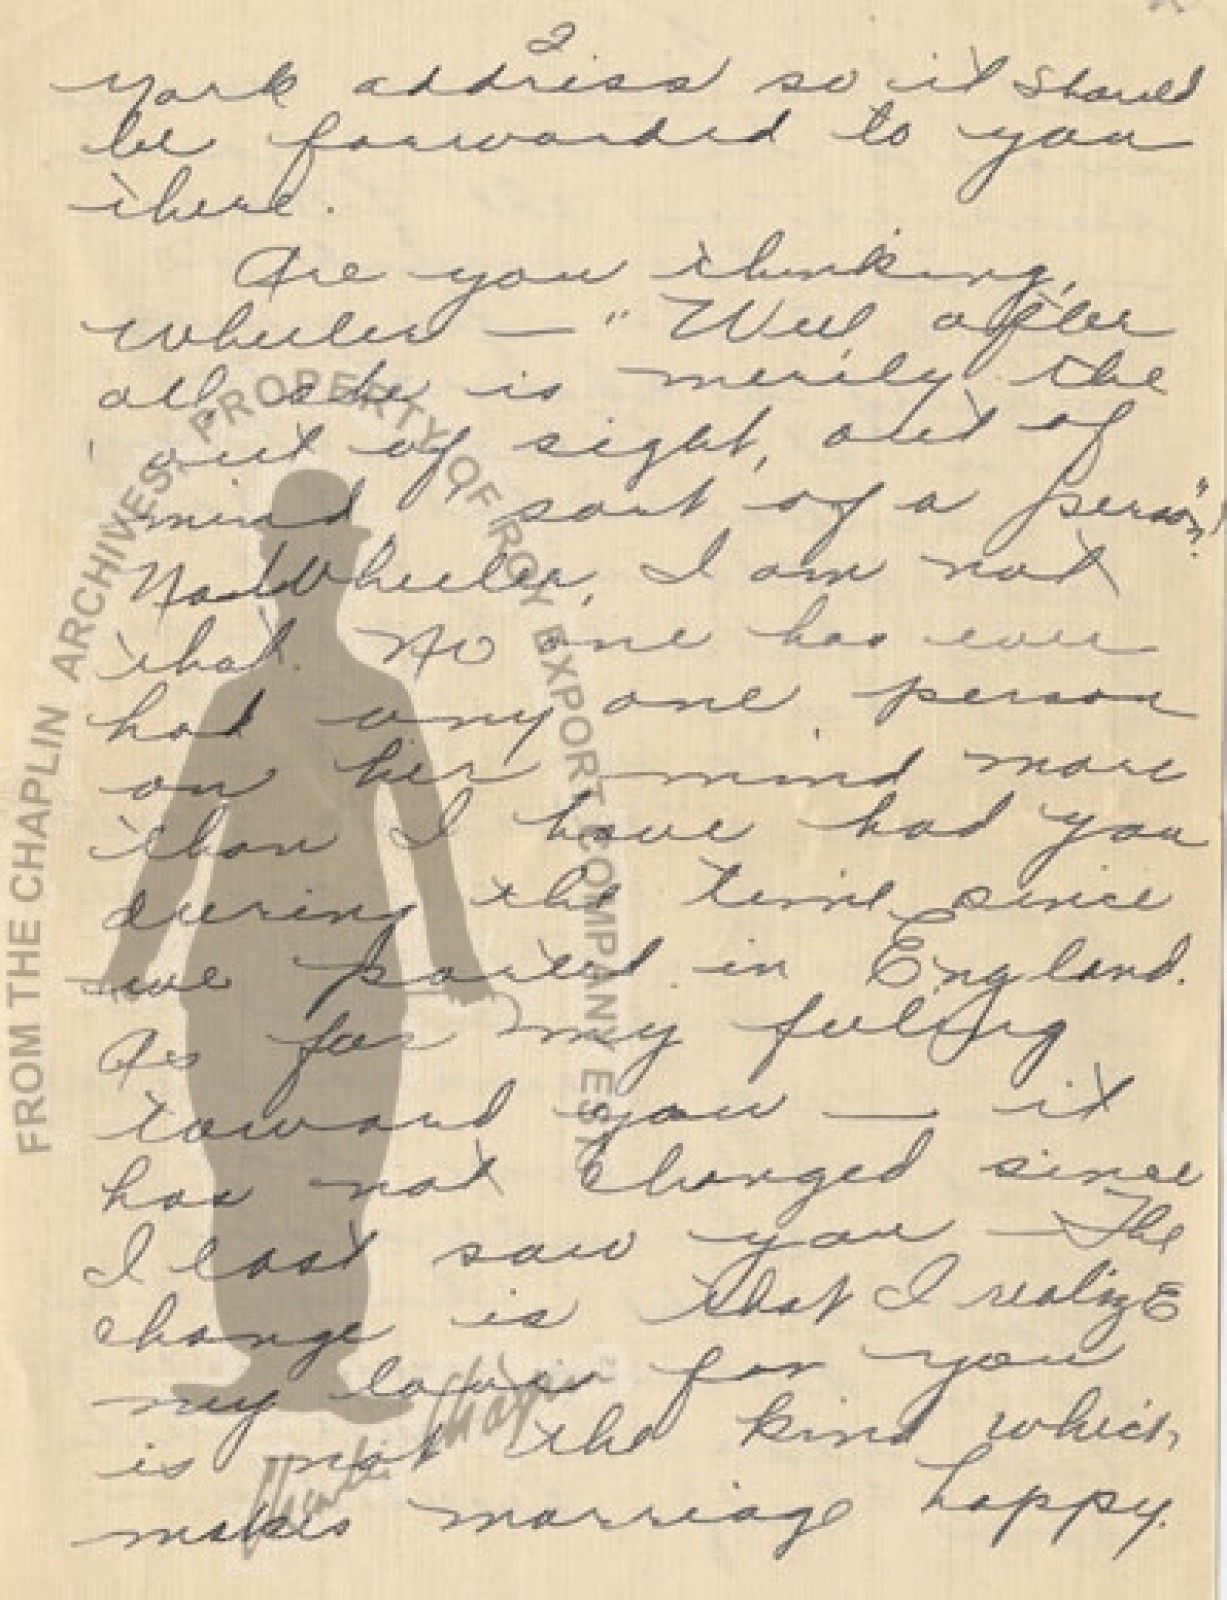 2
York address so it should
be forwarded to you
there.
Are you thinking,
Wheeler — "Well after
all she is merely the
'out of sight, out of
mind' sort of a person"?
No Wheeler, I am not
that. No one has ever
had any one person
on her mind more
than I have had you
during the time since
we parted in England.
As for my feeling
toward you — it
has not changed since
I last saw you — The
change is that I realize
my love for you
is not the kind which
makes marriage happy.
FROM THE CHAPLIN ARCHIVES. PROPERTY OF ROY EXPORT COMPANY EST.
Charlie Chaplin